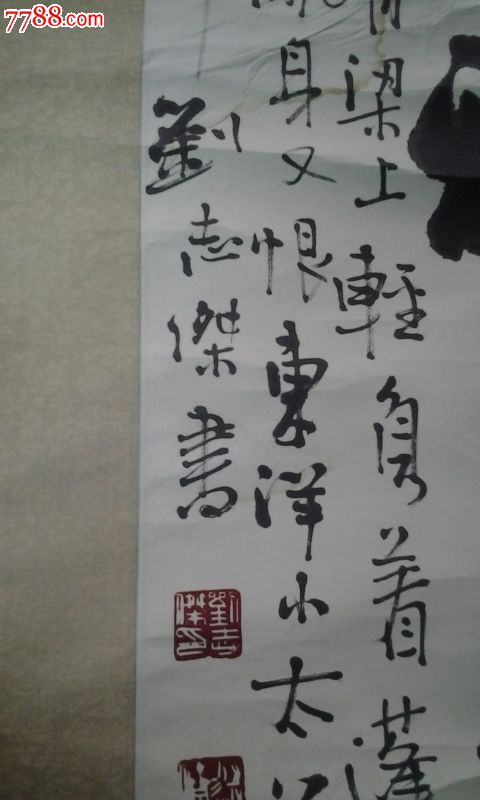 7788.com
梁上輕着
身又恨東洋小太
劉志傑書
劉志傑印